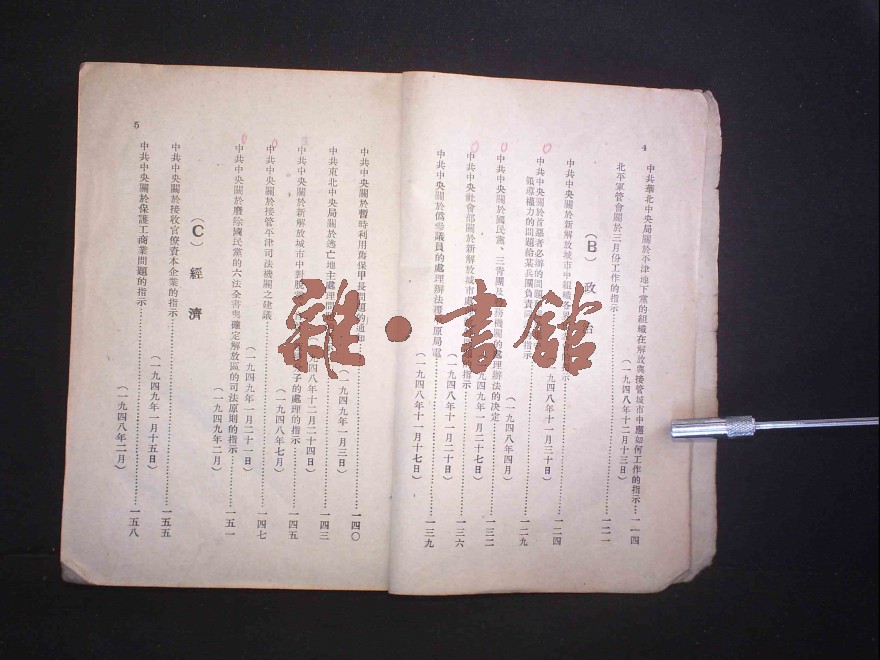 4
中共華北中央局關於平津地下黨的組織在解放與接管城市中應如何工作的指示…一一四
(一九四八年十二月十三日)
北平軍管會關於三月份工作的指示…一二一
(B) 政治
中共中央關於新解放城市中組織各界
指示…一二四
(一九四八年十一月三十日)
中共中央關於首惡者必辦的問題
領導權力的問題給某兵團負責
指示…一二九
(一九四八年四月)
中共中央關於國民黨、三青團及特務機關的處理辦法的決定…一三二
(一九四九年一月二十七日)
中共中央社會部關於新解放城市處
的指示…一三六
(一九四八年十一月二十日)
中共中央關於僞參議員的處理辦法覆
原局電…一三九
(一九四八年十一月十七日)
5
中共中央關於暫時利用舊保甲長問題的通知…一四〇
(一九四九年一月三日)
中共東北中央局關於逃亡地主處理問
…一四三
(一九四八年十二月二十四日)
中共中央關於新解放城市中對
分子的處理的指示…一四五
(一九四八年七月)
中共中央關於接管平津司法機關之建議…一四七
(一九四九年一月二十一日)
中共中央關於廢除國民黨的六法全書與確定解放區的司法原則的指示…一五一
(一九四九年二月)
(C) 經濟
中共中央關於接收官僚資本企業的指示…一五五
(一九四九年一月十五日)
中共中央關於保護工商業問題的指示…一五八
(一九四八年二月)
雜·書館